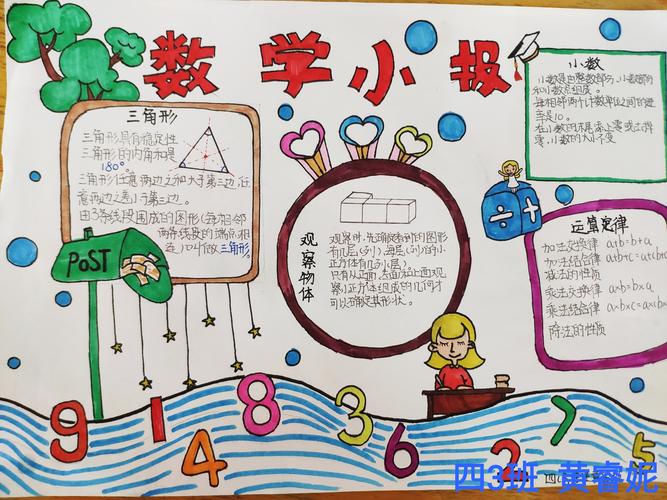 数学小报
三角形
三角形具有稳定性
三角形的内角和是
180°。
三角形任意两边之和大于第三边,任
意两边之差小于第三边。
由3条线段围成的图形(每相邻
两条线段的端点相
连)叫做三角形。
POST
观察物体
观察时,先确定看到的图形
有几层(列),每层(列)有几个小
正方体有几列(层)
可以确定其形状。
小数
小数是由整数部分,小数部分
和小数点组成。
每相邻两个计数单位之间的进
率是10。
零,小数的大小不变
运算定律
加法交换律 a+b=b+a
加法结合律 a+b+c=a+(b+c
减法的性质
乘法交换律 a×b=b×a
乘法结合律 a×b×c=a×(b×c
除法的性质
÷+
9 1 4 8 3 6 2 7 5
四3班 黄睿妮